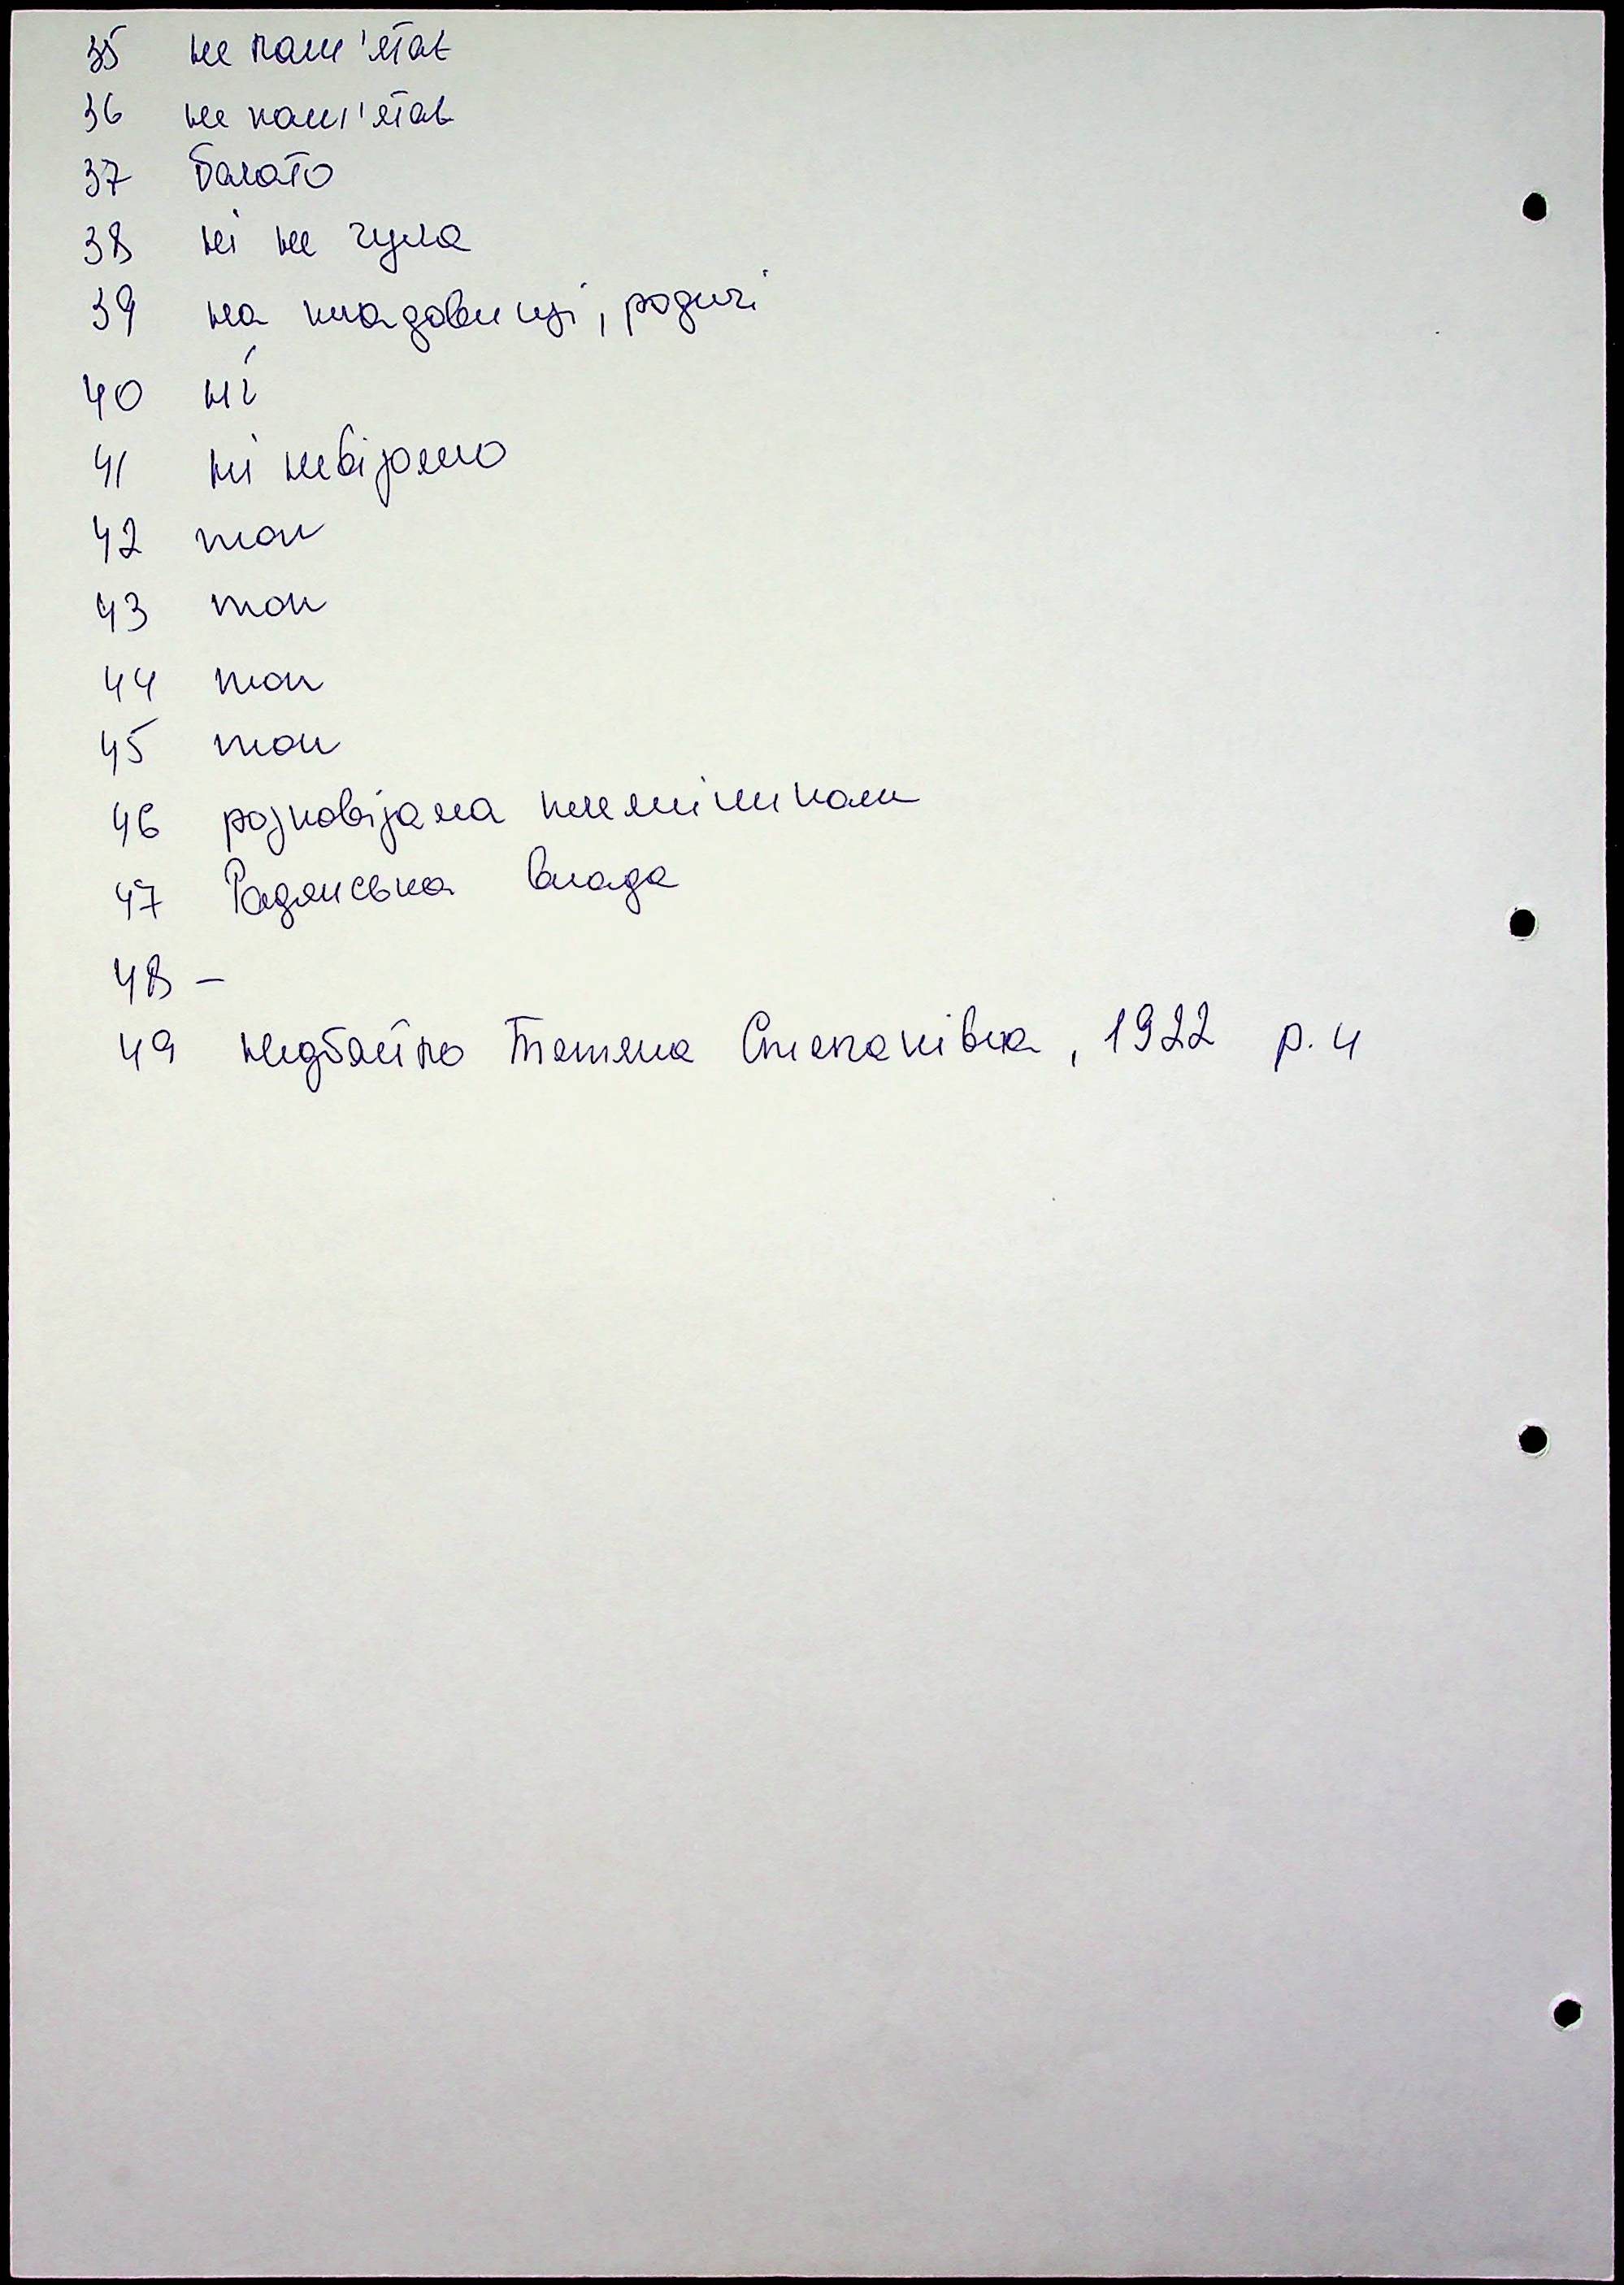 35 не пам'ятає
36 не пам'ятає
37 багато
38 ні не чула
39 на кладовищі, родичі
40 ні
41 ні невідомо
42 так
43 так
44 так
45 так
46 розповідала племінникам
47 Радянська влада
48 –
49 Недбайло Тетяна Степанівна, 1922 р. н